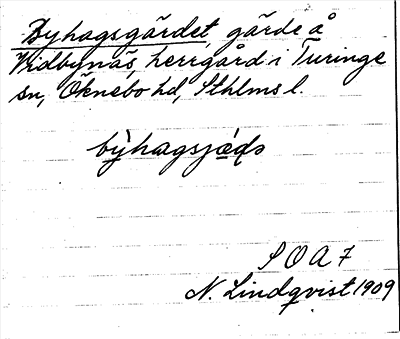 Byhagsgärdet, gärde å
Vidbynäs, herrgård i Turinge
sn, Öknebo hd, Sthlms l.
by̆hagsjæ̀ḍə
S O A 7
N. Lindqvist 1909